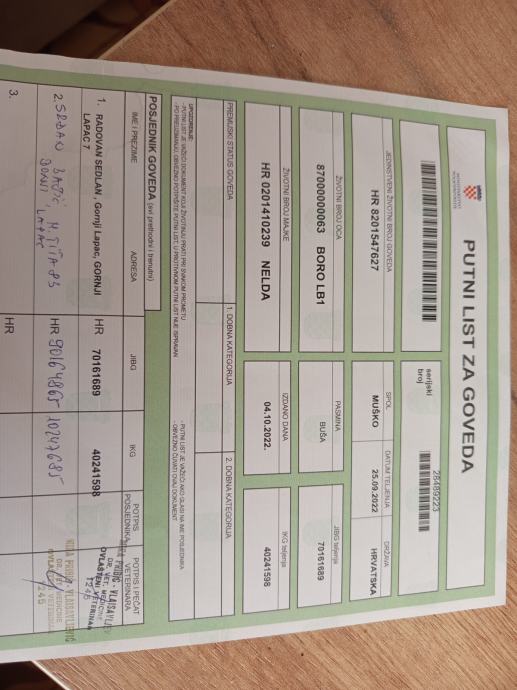 PUTNI LIST ZA GOVEDA
serijski broj
28489223
JEDINSTVENI ŽIVOTNI BROJ GOVEDA
HR 8201547627
SPOL
MUŠKO
DATUM TELJENJA
25.09.2022
DRŽAVA
HRVATSKA
ŽIVOTNI BROJ OCA
87000000063 BORO LB1
PASMINA
BUŠA
JIBG teljenja
70161689
ŽIVOTNI BROJ MAJKE
HR 0201410239 NELDA
IZDANO DANA
04.10.2022.
IKG teljenja
40241598
PREMIJSKI STATUS GOVEDA
1. DOBNA KATEGORIJA
2. DOBNA KATEGORIJA
UPOZORENJE:
- PUTNI LIST JE VAŽEĆI DOKUMENT KOJI ŽIVOTINJU PRATI PRI SVAKOM PROMETU
- PO PREUZIMANJU, OBVEZNO POTPIŠITE PUTNI LIST, U PROTIVNOM PUTNI LIST NIJE ISPRAVAN
- PUTNI LIST JE VAŽEĆI AKO GLASI NA IME POSJEDNIKA
- OBVEZNO ČUVATI OVAJ DOKUMENT
POSJEDNIK GOVEDA (svi prethodni i trenutni)
IME I PREZIME
ADRESA
JIBG
IKG
POTPIS POSJEDNIKA
POTPIS I PEČAT VETERINARA
1. RADOVAN SEDLAN , Gornji Lapac, GORNJI
LAPAC 7
HR 70161689
40241598
DR. VET. MEDICINE
OVLAŠTENI VETERINAR
1246
2. SRĐAN
DONJI LAPAC
HR
DR. VET. MEDICINE
OVLAŠTENI VETERINAR
1246
3.
HR